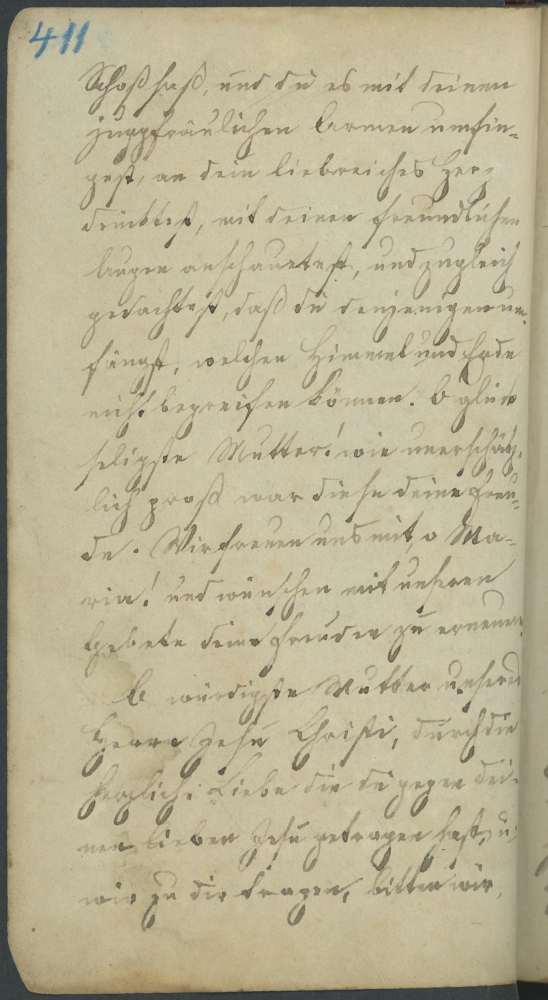 411
Schoß saß, und du es mit deinen
jungfräulichen Armen umfin-
gest, an dein liebreiches Herz
drücktest, mit deinen freundlichen
Augen anschautest, und zugleich
gedachtest, daß du denjenigen um-
fängst, welchen Himmel und Erde
nicht begreifen können. O glück
seligste Mutter! wie unerschätz-
lich groß war diese deine Freu-
de. Wir freuen uns mit, o Ma-
ria! und wünschen mit unseren
Gebete deine Freuden zu erneuern
O würdigste Mutter unseres
Herrn Jesu Christi, durch die
herzliche Liebe die du gegen dei-
nen lieben Jesu getragen hast, u.
wir zu dir tragen, bitten wir,